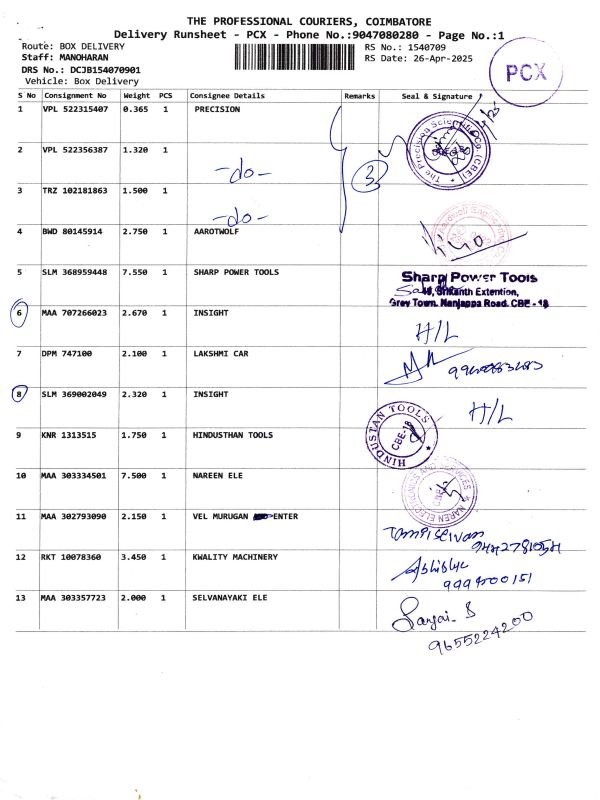 THE PROFESSIONAL COURIERS, COIMBATORE
Delivery Runsheet - PCX - Phone No.:9047080280 - Page No.:1
Route: BOX DELIVERY RS No.: 1540709
Staff: MANOHARAN RS Date: 26-Apr-2025
DRS No.: DCJB154070901
Vehicle: Box Delivery
PCX
S No Consignment No Weight PCS Consignee Details Remarks Seal & Signature
1 VPL 522315407 0.365 1 PRECISION
The Precision Scientific Co. (CBE)
2 VPL 522356387 1.320 1
-do-
3
3 TRZ 102181863 1.500 1
-do-
4 BWD 80145914 2.750 1 AAROTWOLF
5 SLM 368959448 7.550 1 SHARP POWER TOOLS
Sharp Power Tools
Srikanth Extention,
Grey Town. Nanjappa Road. CBE - 18
6 MAA 707266023 2.670 1 INSIGHT
H/L
7 DPM 747100 2.100 1 LAKSHMI CAR
8 SLM 369002049 2.320 1 INSIGHT
H/L
9 KNR 1313515 1.750 1 HINDUSTHAN TOOLS
HINDUSTAN TOOLS
CBE-18
10 MAA 303334501 7.500 1 NAREEN ELE
NAREN ELECTRONICS AND SERVICES
11 MAA 302793090 2.150 1 VEL MURUGAN ENTER
12 RKT 10078360 3.450 1 KWALITY MACHINERY
13 MAA 303357723 2.000 1 SELVANAYAKI ELE
Sanjai. S
9655224200